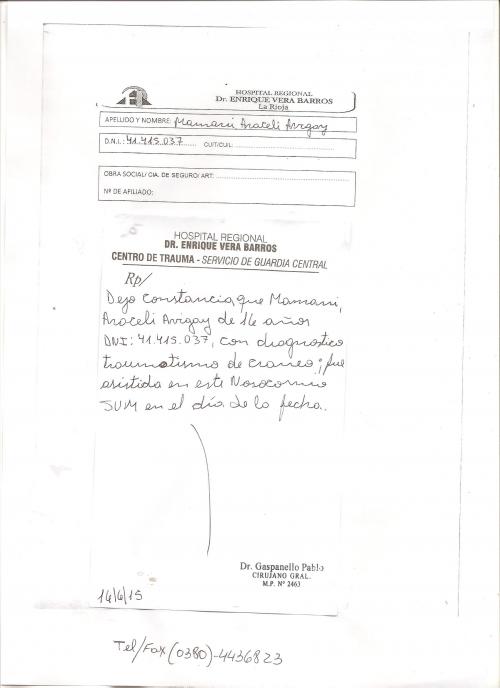 HOSPITAL REGIONAL
Dr. ENRIQUE VERA BARROS
La Rioja
APELLIDO Y NOMBRE: Mamani Araceli Avigay
D.N.I.: 41.415.037 CUIT/CUIL:
OBRA SOCIAL/ CIA. DE SEGURO/ ART:
Nº DE AFILIADO:
HOSPITAL REGIONAL
DR. ENRIQUE VERA BARROS
CENTRO DE TRAUMA - SERVICIO DE GUARDIA CENTRAL
Rp/
Dejo constancia, que Mamani,
Araceli Avigay de 16 años
DNI: 41.415.037, con diagnostico
traumatismo de craneo; fue
asistida en este Nosocomio
SUM en el día de la fecha.
Dr. Gaspanello Pablo
CIRUJANO GRAL.
M.P. Nº 2463
14/6/15
Tel/Fax (0380)-4436823